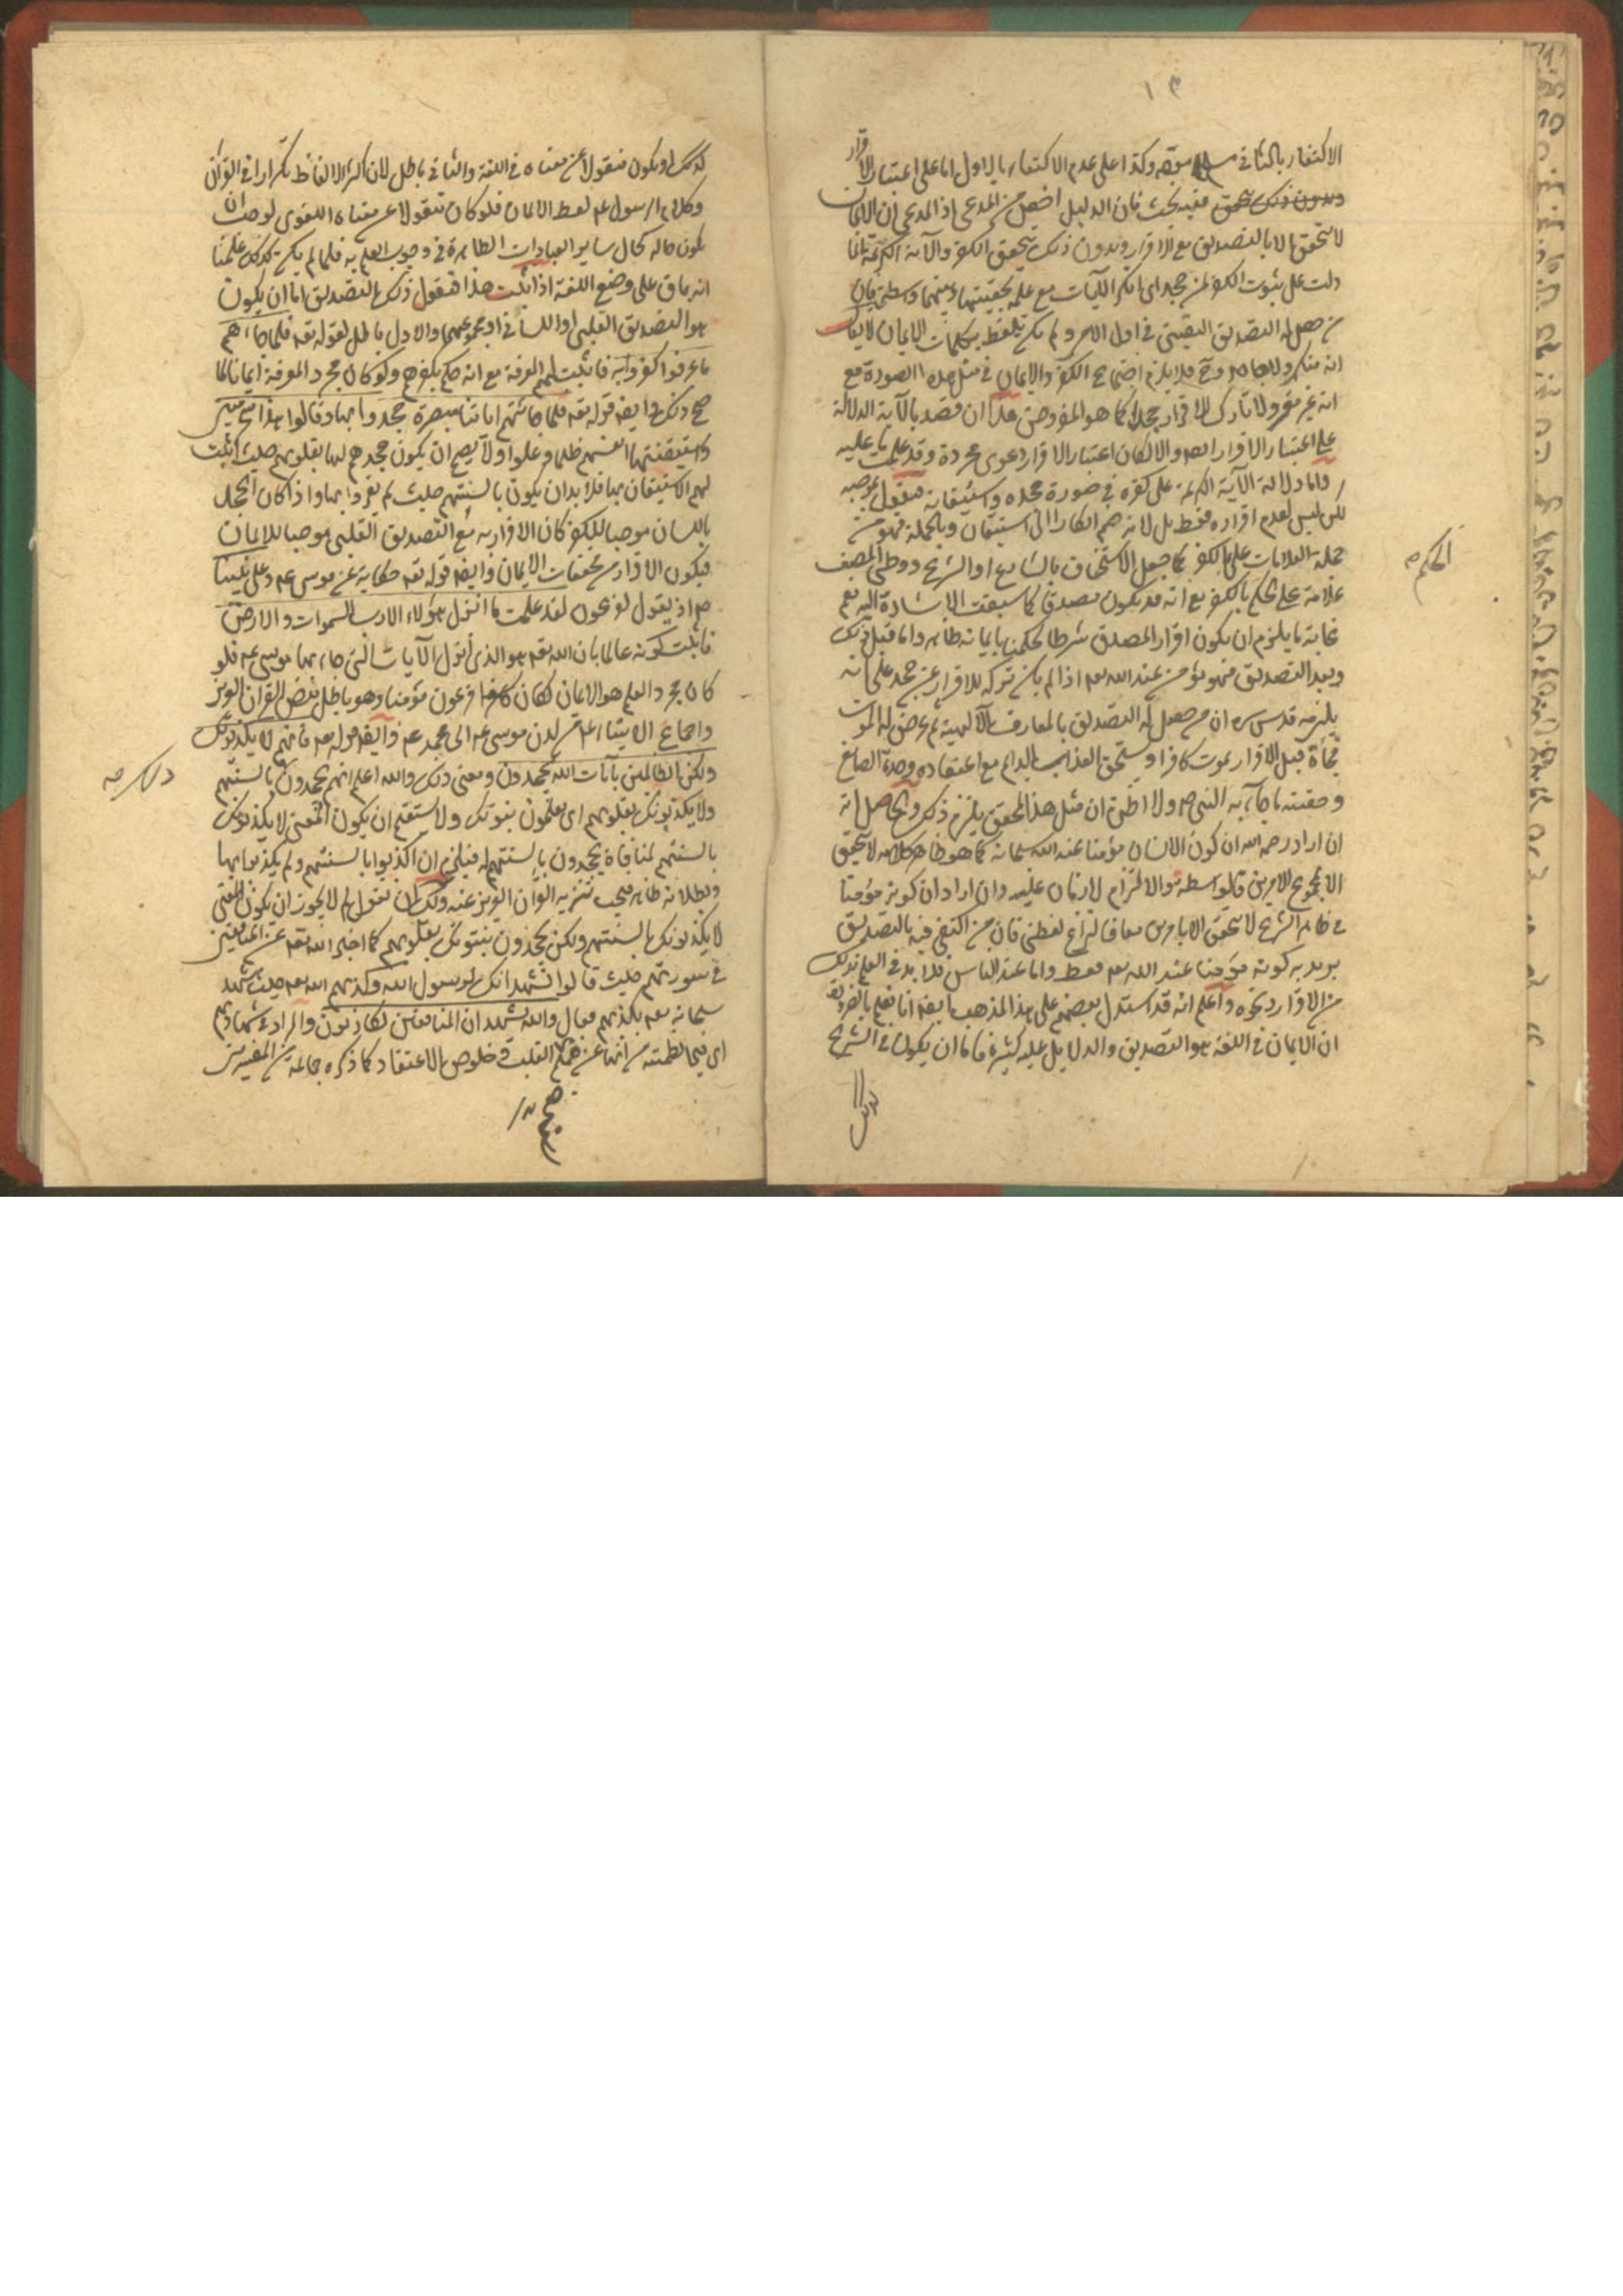 ١٣
الاكتفاء بالثاني وكذا على عدم الاكتفاء بالاول اما على اعتبار الاقرار
وبدون ذلك يتحقق ففيه بحث فان الدليل اخص من المدعى اذ المدعى ان الايمان
لا يتحقق الا بالتصديق مع الاقرار وبدون ذلك يتحقق الكفر والآية الكريمة انما
دلت على ثبوت الكفر لمن جحد اى انكر الآيات مع علمه بحقيتها وبينهما واسطة فان
من حصل له التصديق اليقينى فى اول الامر ولم يكن تلفظ بكلمات الايمان لا يقال
انه منكر ولا جاحد وح فلا يلزم اجتماع الكفر والايمان فى مثل هذه الصورة مع
انه غير مقر ولا تارك للاقرار جحدا كما هو المفروض هذا ان قصد بالآية الدلالة
على اعتبار الاقرار ايضا والا لكان اعتبار الاقرار دعوى مجردة وقد علمت ما عليه
واما دلالة الآية الكريمة على كفره فى صورة جحده واستيقانه فنقول بموجبه
لكن ليس لعدم اقراره فقط بل لانه ضم انكارا الى استيقان وبالجملة فهو من
جملة العلامات على الكفر كما جعل الاستخفاف بالشارع او الشرع ووطى المصحف
الحكم صح
علامة على الحكم بالكفر مع انه قد يكون مصدقا كما سبقت الاشارة اليه نعم
غاية ما يلزم ان يكون اقرار المصدق شرطا لحكمنا بايمانه ظاهرا واما قبل ذلك
وبعد التصديق فهو مؤمن عند الله تعه اذا لم يكن تركه للاقرار عن جحد على انه
يلزمه قدس سره ان من حصل له التصديق بالمعارف الالهية ثم عرض له الموت
فجأة قبل الاقرار يموت كافرا ويستحق العذاب الدايم مع اعتقاده وحدة الصانع
وحقيته ما جاء به النبى ص ولا اظن ان مثل هذا المحقق يلتزم ذلك والحاصل انه
ان اراد رحمه الله ان كون الانسان مؤمنا عند الله سبحانه كما هو ظاهر كلامه لا يتحقق
الا بمجموع الامرين فالواسطة والالتزام لازمان عليه وان اراد ان كونه مؤمنا
فى ظاهر الشرع لا يتحقق الا بالامرين معا فالنزاع لفظى فان من اكتفى فيه بالتصديق
يريد به كونه مؤمنا عند الله تعه فقط واما عند الناس فلا بد فى العلم بذلك
من الاقرار ونحوه واعلم انه قد استدل بعضهم على هذا المذهب ايضا انا نعلم بالضرورة
ان الايمان فى اللغة هو التصديق والدلايل عليه كثيرة فاما ان يكون فى الشرع
كذلك
كذلك او يكون منقولا عن معناه فى اللغة والثانى باطل لان اكثر الالفاظ تكرارا فى القرآن
وكلام الرسول عم لفظ الايمان فلو كان منقولا عن معناه اللغوى لوجب ان
يكون حاله كحال ساير العبادات الظاهرة فى وجوب العلم به فلما لم يكن كذلك علمنا
انه باق على وضع اللغة اذا ثبت هذا فنقول ذلك التصديق اما ان يكون
هو التصديق القلبى او اللسانى او مجموعهما والاول باطل لقوله تعه فلما جاءهم
ما عرفوا كفروا به فاثبت لهم المعرفة مع انه حكم بكفرهم ولو كان مجرد المعرفة ايمانا لما
صح ذلك وايضا قوله تعه فلما جائتهم آياتنا مبصرة جحدوا بها وقالوا هذا سحر مبين
واستيقنتها انفسهم ظلما وعلوا ولا يصح ان يكون جحدهم لها بقلوبهم حيث اثبت
لهم الاستيقان بها فلا بد ان يكون بالسنتهم حيث لم يقروا بها واذا كان الجحد
باللسان موجبا للكفر كان الاقرار به مع التصديق القلبى موجبا للايمان
فيكون الاقرار من محققات الايمان وايضا قوله تعه حكاية عن موسى عم وعلى نبينا
م اذ يقول لفرعون لقد علمت ما انزل هؤلاء الا رب السموات والارض
فاثبت كونه عالما بان الله تعه هو الذى انزل الآيات التى جاء بها موسى عم فلو
كان مجرد العلم هو الايمان لكان فرعون مؤمنا وهو باطل بنص القرآن العزيز
واجماع الانبياء عم من لدن موسى عم الى محمد عم وايضا قوله تعه فانهم لا يكذبونك
ولكن الظالمين بآيات الله يجحدون ومعنى ذلك والله اعلم انهم يجحدون بالسنتهم
ولا يكذبونك بقلوبهم اى يعلمون نبوتك ولا يستقيم ان يكون المعنى لا يكذبونك
بالسنتهم لمنافاة يجحدون بالسنتهم له فيلزم ان كذبوا بالسنتهم ولم يكذبوا بها
وبطلانه ظاهر فيجب تنزيه القرآن العزيز عنه ولك ان تقول لم لا يجوز ان يكون المعنى
لا يكذبونك بالسنتهم ولكن يجحدون نبوتك بقلوبهم كما اخبر الله تعه عن المنافقين
فى سورتهم حيث قالوا نشهد انك لرسول الله وكذبهم الله تعه حيث شهد
سبحانه تعه بكذبهم فقال والله يشهد ان المنافقين لكاذبون والمراد فى شهادتهم
اى فيما تضمنته من انها عن صميم القلب وخلوص الاعتقاد كما ذكره جماعة من المفسرين